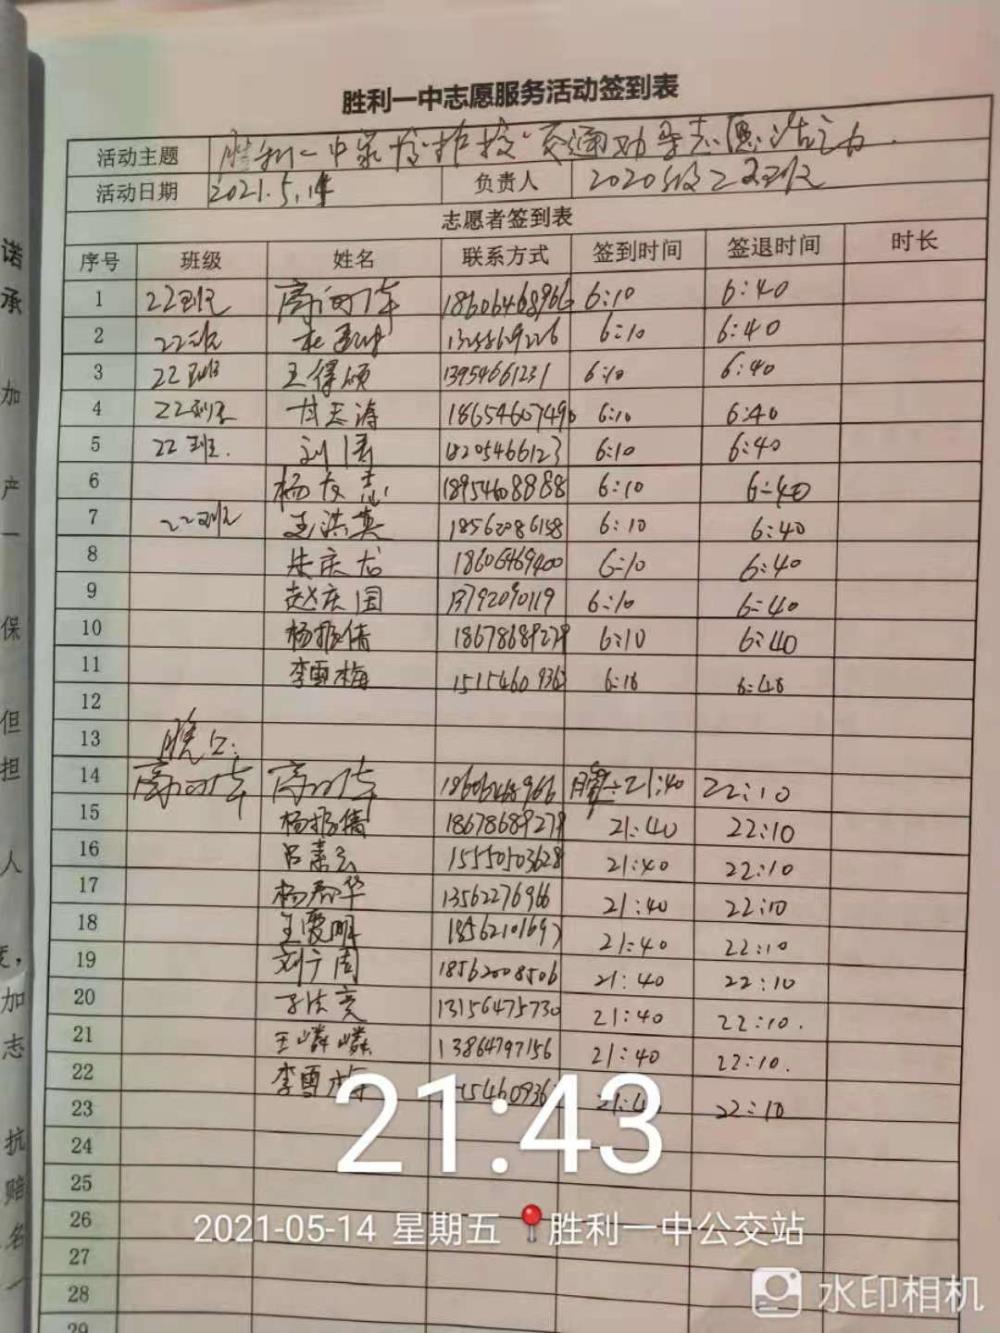 胜利一中志愿服务活动签到表
活动主题 胜利一中家长护校"交通劝导志愿活动
活动日期 2021.5.14 负责人 2020级22班
志愿者签到表
序号 班级 姓名 联系方式 签到时间 签退时间 时长
1 22班 18606468966 6:10 6:40
2 22班 6:10 6:40
3 22班 王保硕 13954661231 6:10 6:40
4 22班 甘志涛 18654607490 6:10 6:40
5 22班. 刘涛 18205466123 6:10 6:40
6 杨友志 18954608888 6:10 6:40
7 22班 王洪英 18562086158 6:10 6:40
8 朱庆龙 18606469400 6:10 6:40
9 赵庆国 13792090119 6:10 6:40
10 杨振倩 18678689279 6:10 6:40
11 李雪梅 15154609362 6:10 6:40
12
13 晚上:
14 18606468966 21:40 22:10
15 杨振倩 18678689279 21:40 22:10
16 吕素云 15550103628 21:40 22:10
17 杨春华 13562276966 21:40 22:10
18 王爱明 18562101697 21:40 22:10
19 刘广周 18562008506 21:40 22:10
20 13156475730 21:40 22:10.
21 王嶙嶙 13864797156 21:40 22:10.
22 李雪梅 22:10
23
24
25
26
27
28
29
诺
承
加
产
一
保
但
担
人
,
加
志
抗
赔
名
一
21:43
2021-05-14 星期五 胜利一中公交站
水印相机